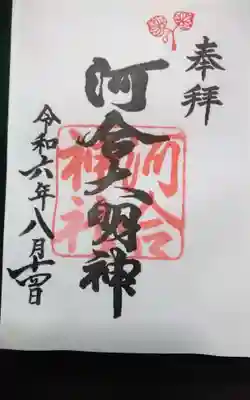 奉拝
河合大明神
河合神社
令和六年八月十四日